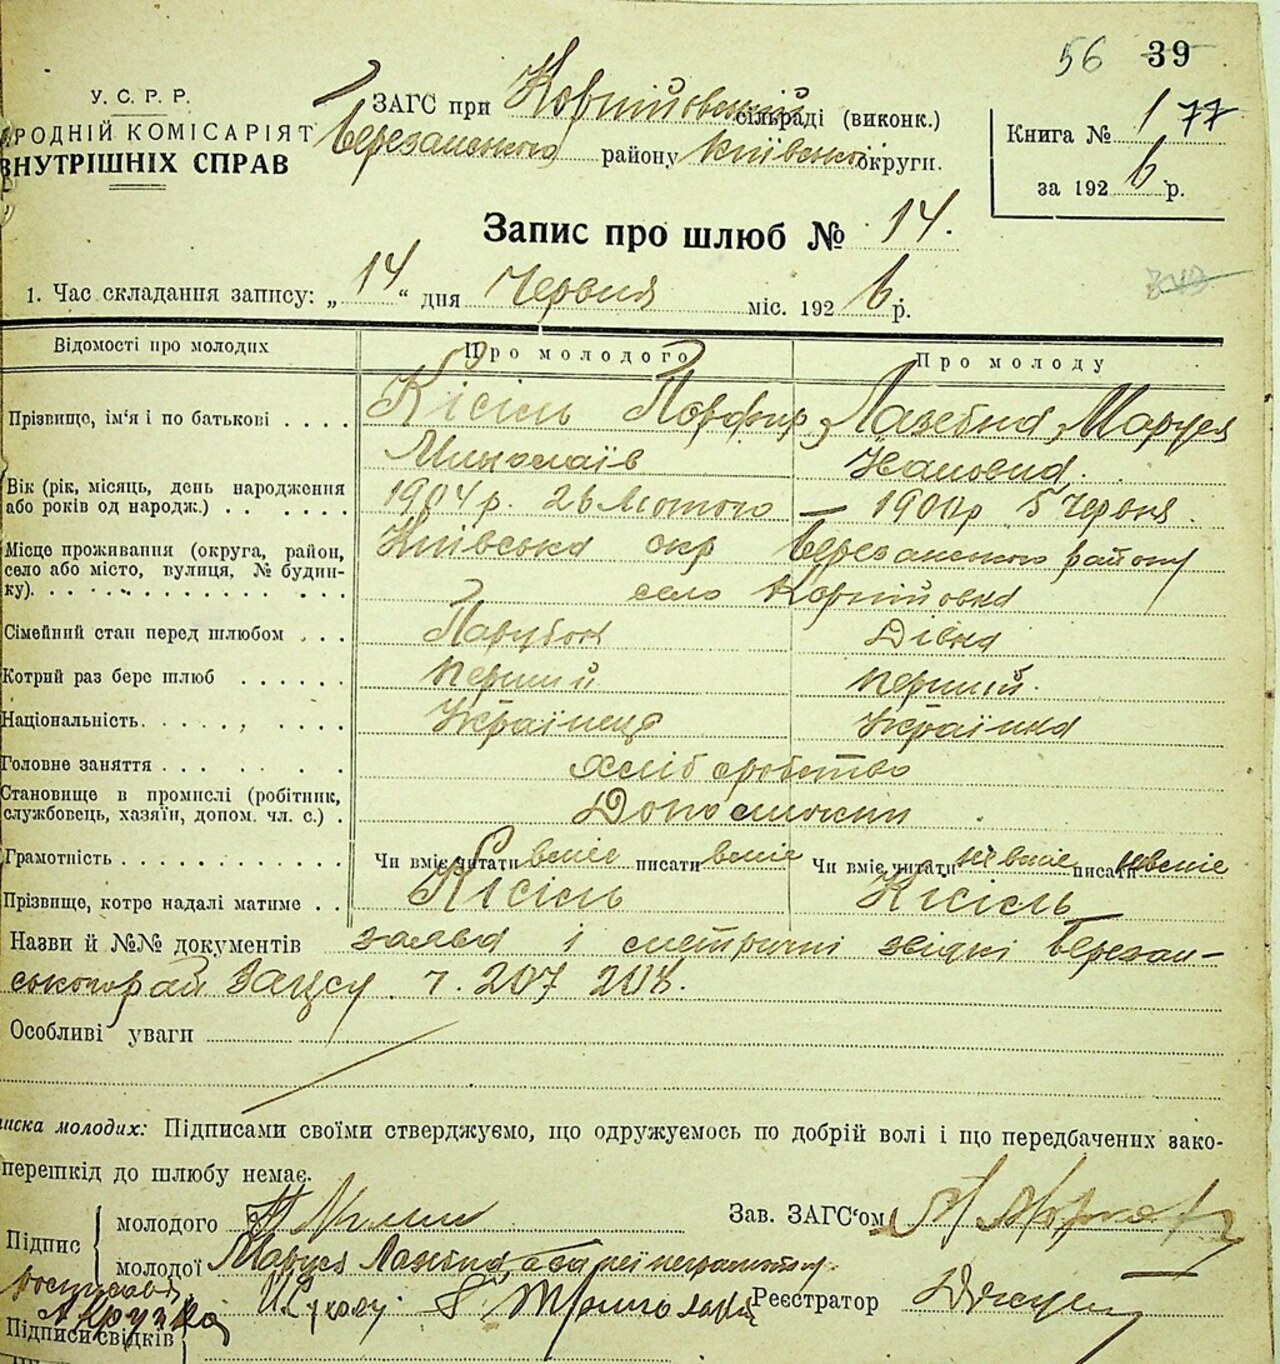 56 39
У. С. Р. Р.
РОДНІЙ КОМІСАРІЯТ
ВНУТРІШНІХ СПРАВ
ЗАГС при Корнійовській сільраді (виконк.)
Березанського району Київської округи.
Книга № 1 77
за 1926 р.
Запис про шлюб № 14.
1. Час складання запису: „14“ дня Червня міс. 1926 р.
Відомості про молодих Про молодого Про молоду
Прізвище, ім'я і по батькові . . . . Кісіль Порфир Лазебна Маруся
Миколаїв Івановна.
Вік (рік, місяць, день народження
або років од народж.) . . . . . . 1904 р. 26 Лютого — 1900 р 5 Червня.
Місце проживання (округа, район,
село або місто, вулиця, № будин-
ку). Київська окр Березанського району
село Корнійовка
Сімейний стан перед шлюбом . . . Парубок Дівка
Котрий раз бере шлюб . . . . . . перший перший.
Національність. . . . , . . . . Українець Українка
Головне заняття . . . . . . . хліборобство
Становище в промислі (робітник,
службовець, хазяїн, допом. чл. с.) .
Грамотність . . . . . . . . . . . . Чи вміє читати вміє писати вміє Чи вміє читати невміє писати невміє
Прізвище, котре надалі матиме . . Кісіль Кісіль
Назви й №№ документів заява і метричні звідкі Березан-
ського рай Загсу . ч. 207 208.
Особливі уваги
иска молодих: Підписами своїми стверджуємо, що одружуємось по добрій волі і що передбачених зако-
перешкід до шлюбу немає.
Підпис
молодого
Зав. ЗАГС'ом
молодої Маруся Лазебна, а за неї неграмотну
Реєстратор
Підписи свідків